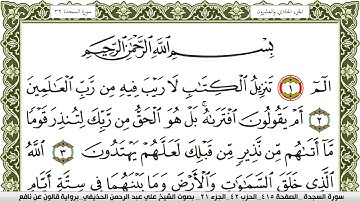 الجزء الحادي والعشرون
سورة السجدة ٣٢
بِسْمِ اللَّهِ الرَّحْمَٰنِ الرَّحِيمِ
أَلَٓمِّٓ ١ تَنزِيلُ الْكِتَابِ لَا رَيْبَ فِيهِ مِن رَّبِّ الْعَالَمِينَ
٢ أَمْ يَقُولُونَ افْتَرَاهُ بَلْ هُوَ الْحَقُّ مِن رَّبِّكَ لِتُنذِرَ قَوْمًا
مَّا أَتَاهُم مِّن نَّذِيرٍ مِّن قَبْلِكَ لَعَلَّهُمْ يَهْتَدُونَ ٣ اللَّهُ
الَّذِي خَلَقَ السَّمَاوَاتِ وَالْأَرْضَ وَمَا بَيْنَهُمَا فِي سِتَّةِ أَيَّامٍ
سورة السجدة الصفحة ٤١٥ الحزب ٤٢ الجزء ٢١ بصوت الشيخ علي عبد الرحمن الحذيفي برواية قالون عن نافع